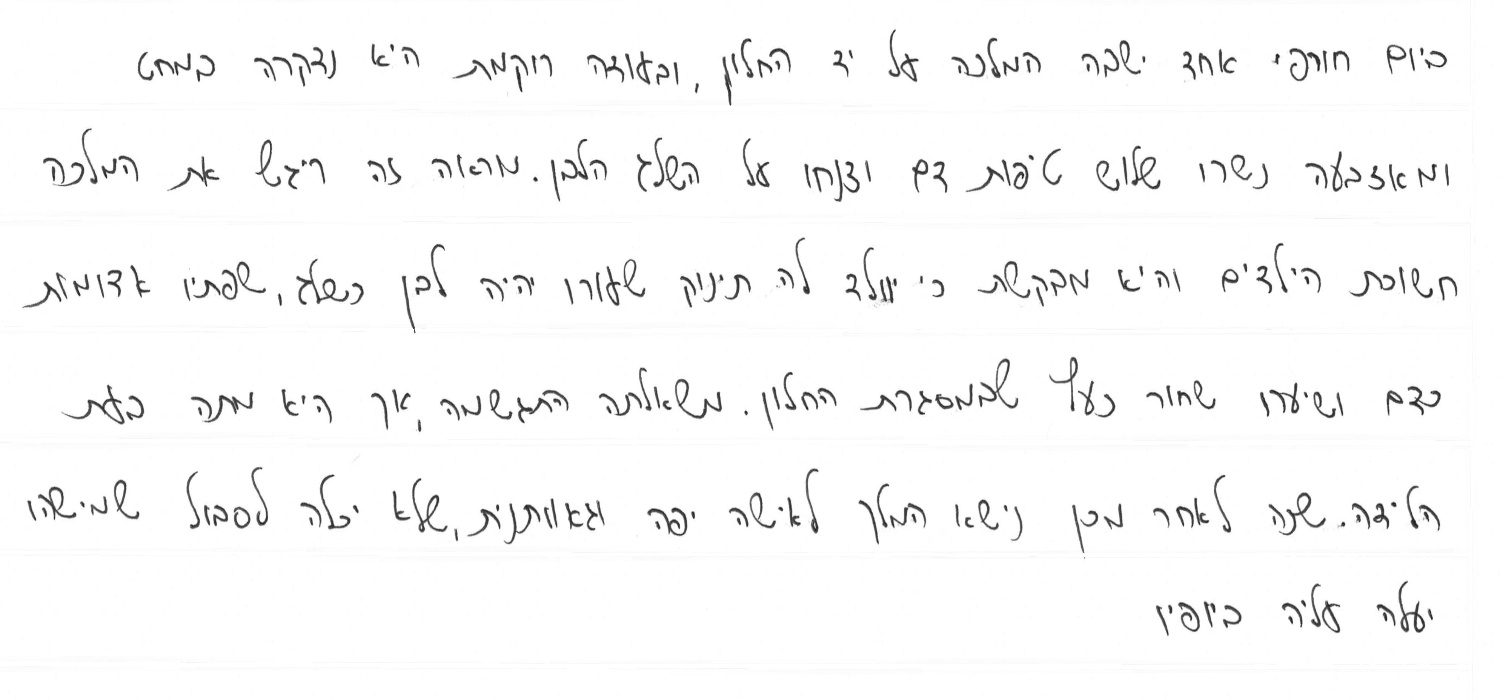 ביום חורפי אחד ישבה המלכה על יד החלון, ובעודה רוקמת היא נדקרה במחט
ומאצבעה נשרו שלוש טיפות דם וצנחו על השלג הלבן. מראה זה ריגש את המלכה
חשוכת הילדים והיא מבקשת כי יוולד לה תינוק שעורו יהיה לבן כשלג, שפתיו אדומות
כדם ושיערו שחור כעץ שבמסגרת החלון. משאלתה התגשמה, אך היא מתה בעת
הלידה. שנה לאחר מכן נישא המלך לאישה יפה וגאוותנית, שלא יכלה לסבול שמישהו
יעלה עליה ביופיו